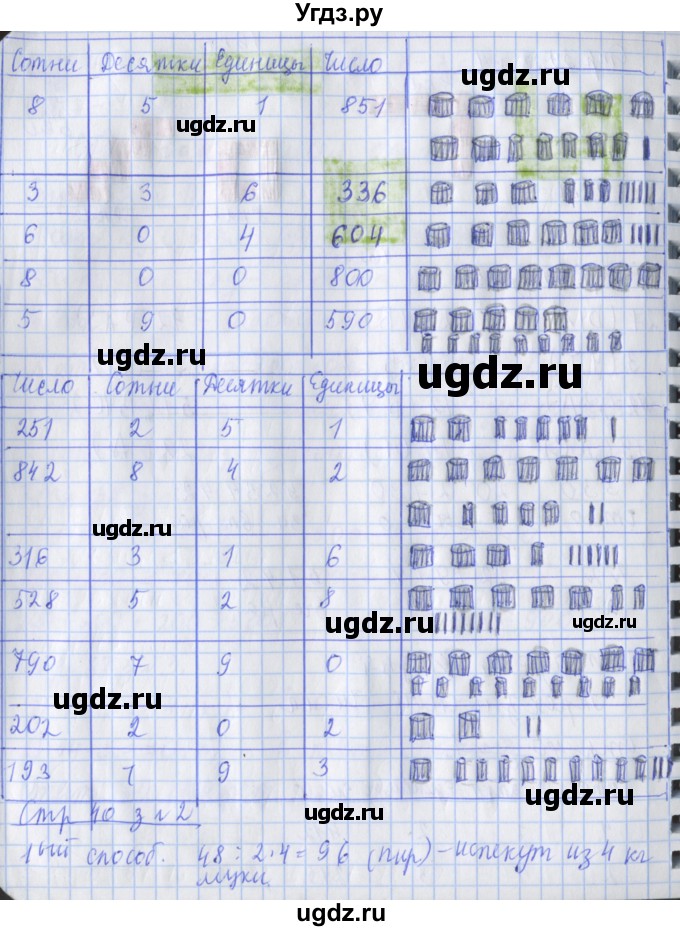 Угдз.ру
Сотни Десятки Единицы Число
ugdz.ru
8 5 1 851
ugdz.ru
3 3 6 336
6 0 4 604
8 0 0 800
5 9 0 590
ugdz.ru
ugdz.ru
Число Сотни Десятки Единицы
251 2 5 1
842 8 4 2
ugdz.ru
316 3 1 6
528 5 2 8
ugdz.ru
ugdz.ru
790 7 9 0
ugdz.ru
202 2 0 2
193 1 9 3
ugdz.ru
Стр 40 з n 2
ugdz.ru
1ый способ. 48 : 2 · 4 = 96 (пир) – испекут из 4 кг
муки
ugdz.ru